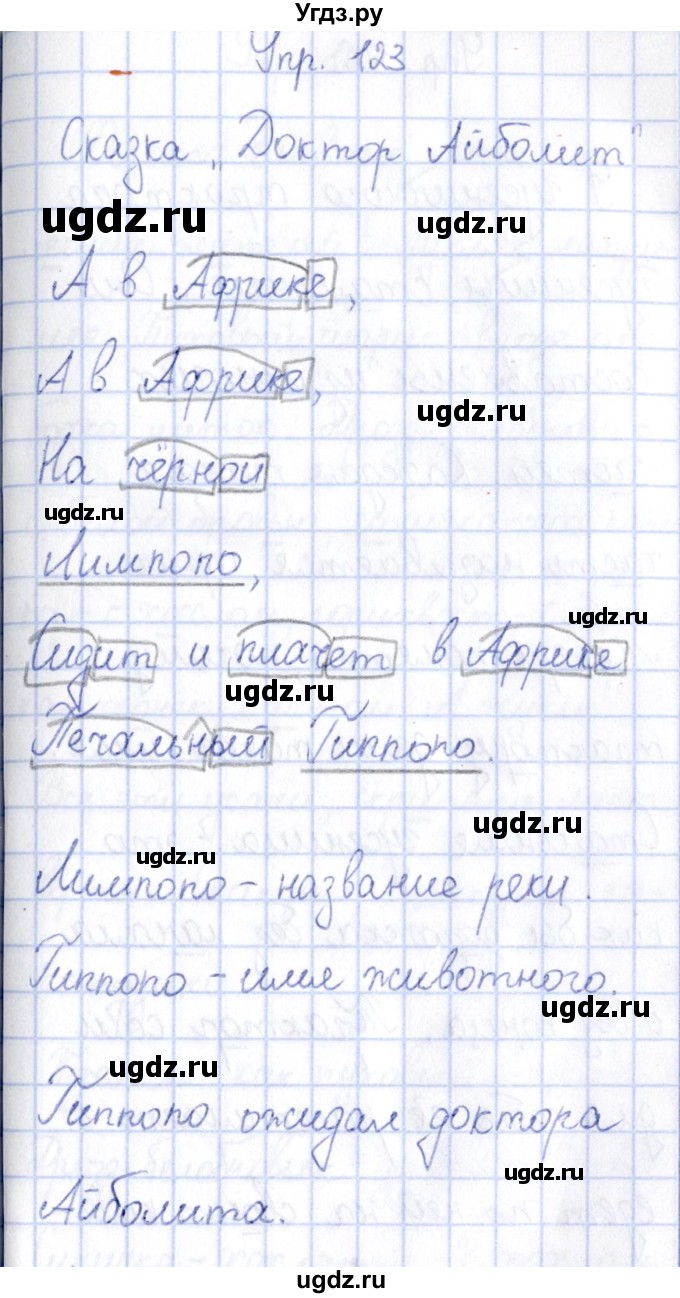 Угдз.ру
Упр. 123
Сказка „Доктор Айболит"
ugdz.ru ugdz.ru
А в Африке,
А в Африке,
ugdz.ru
На чёрной
ugdz.ru
Лимпопо,
ugdz.ru
Сидит и плачет в Африке
ugdz.ru
Печальный Гиппопо.
ugdz.ru
ugdz.ru
Лимпопо – название реки.
Гиппопо – имя животного.
ugdz.ru
ugdz.ru
Гиппопо ожидал доктора
ugdz.ru
Айболита.
ugdz.ru